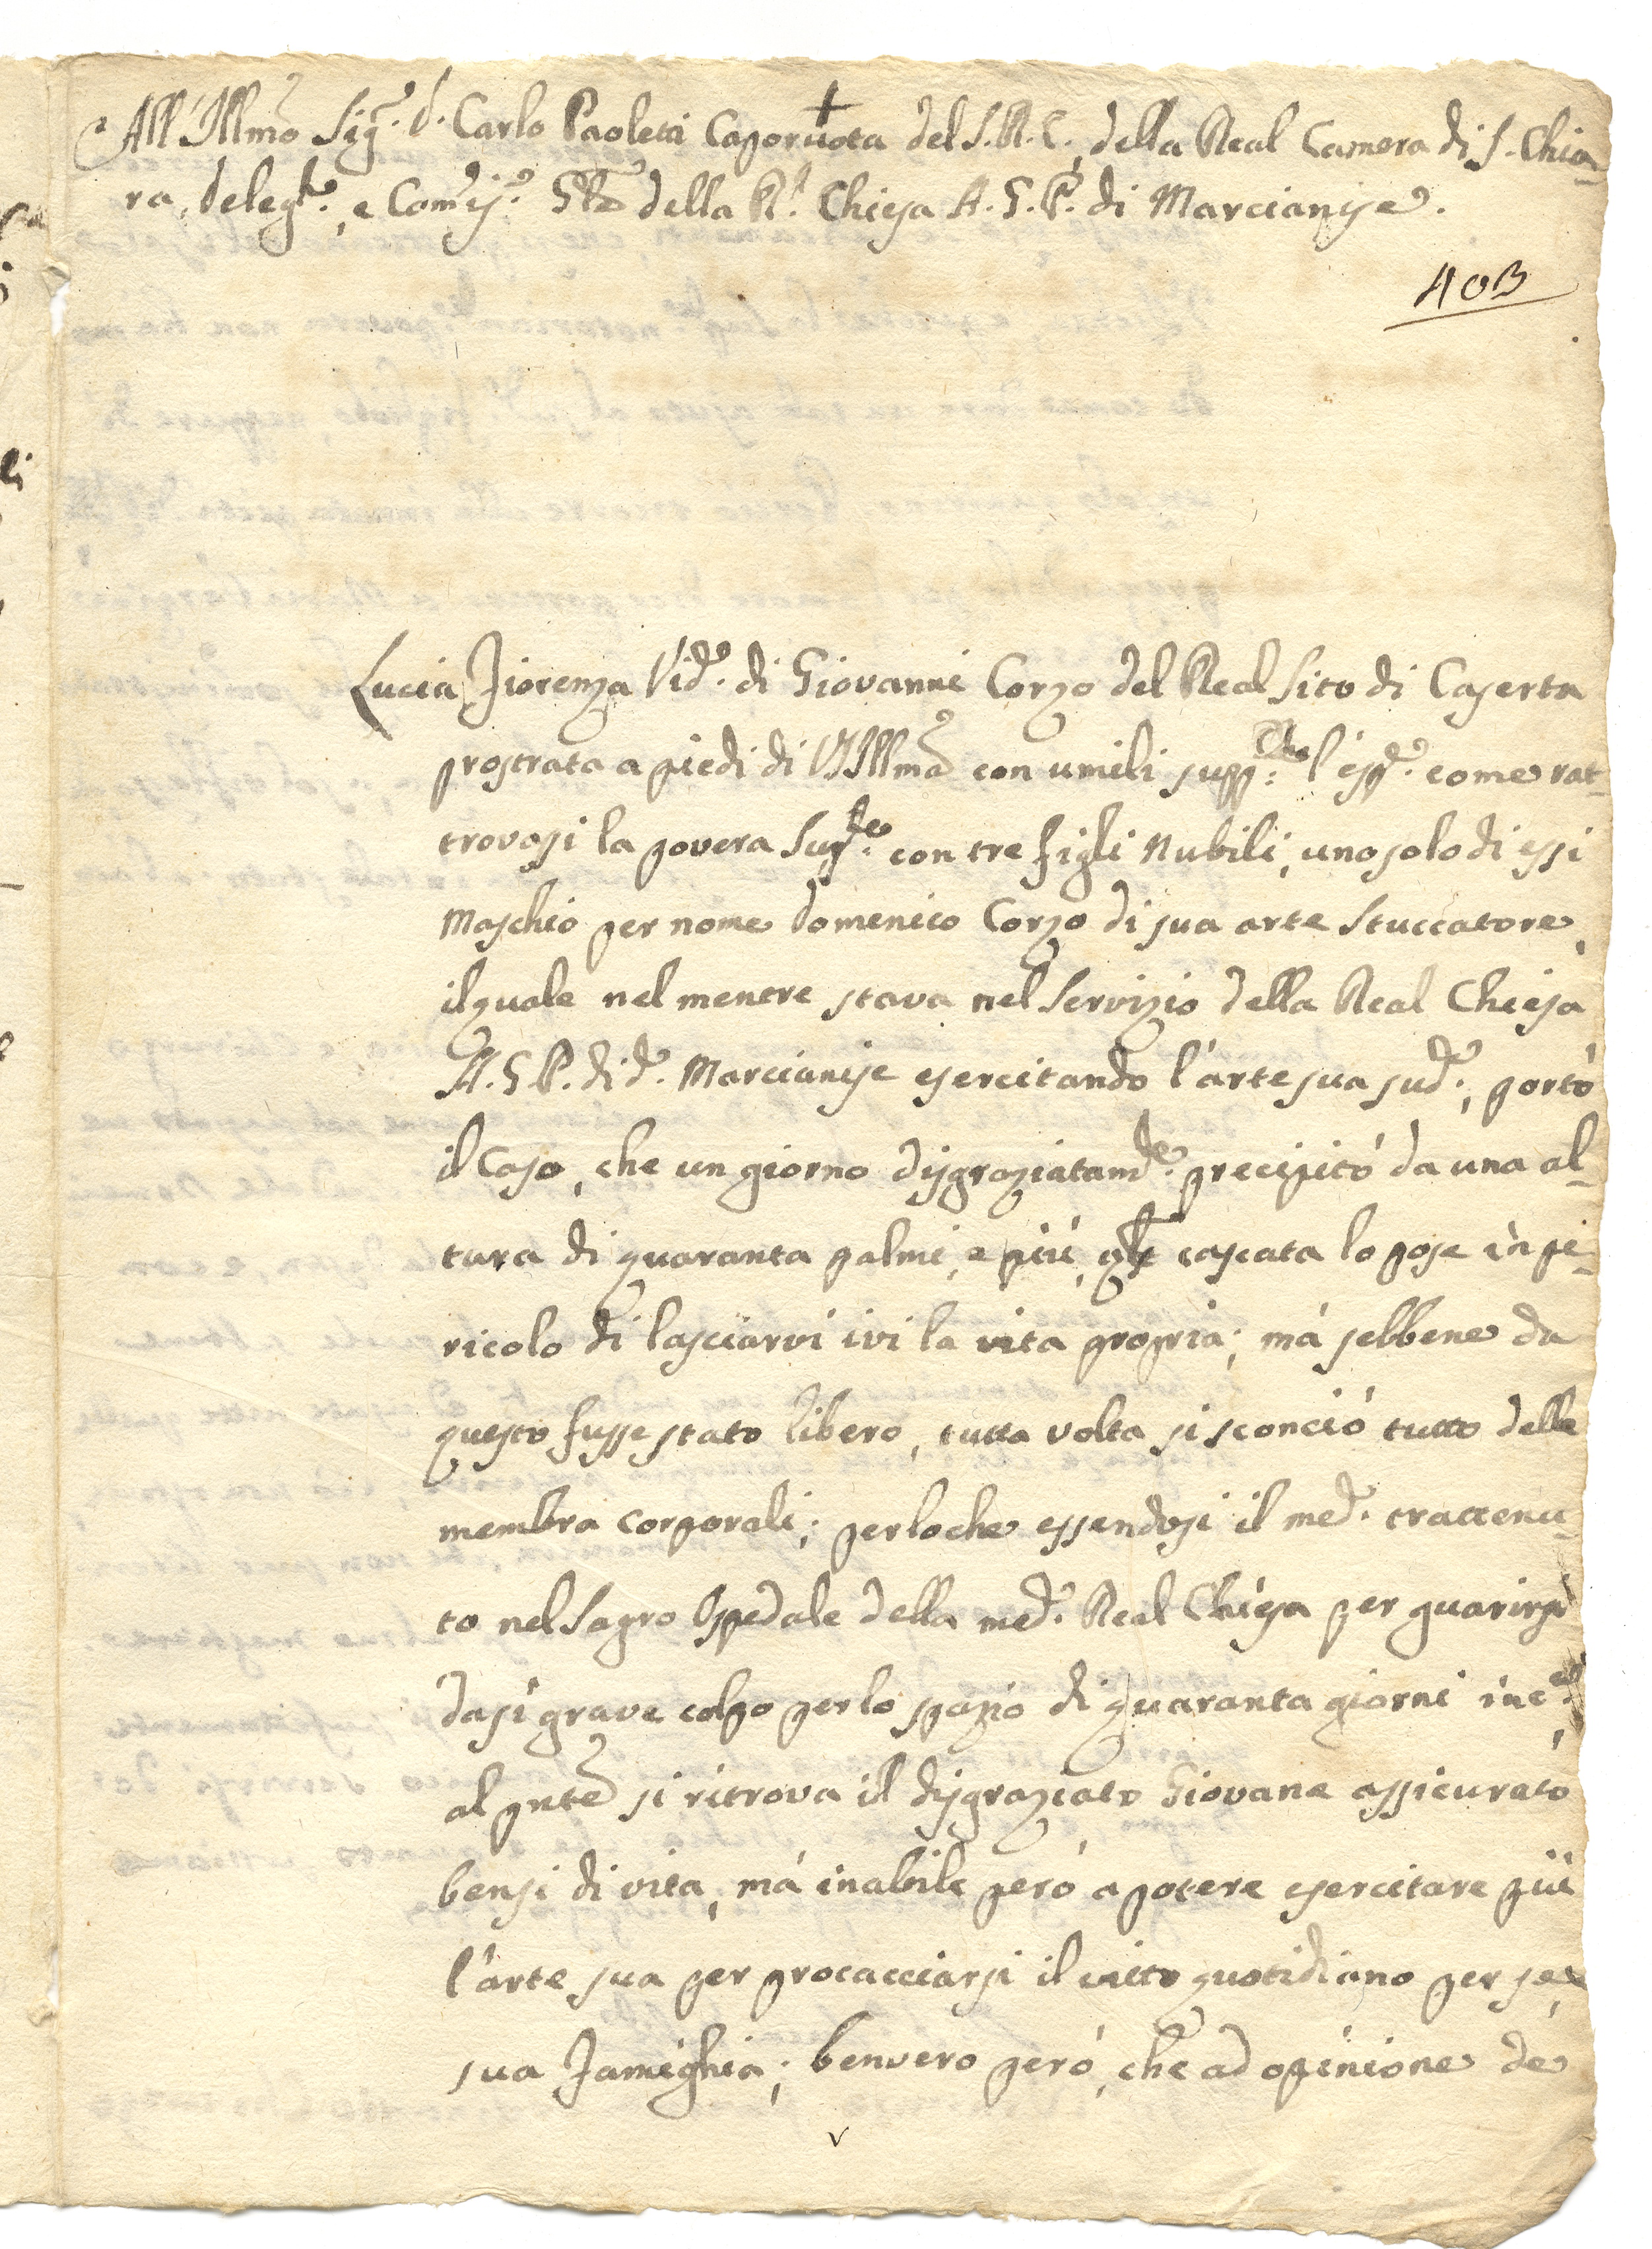 †
All' Illmo Sig.e D. Carlo Paoletti Caporuota del S.R.C., della Real Camera di S. Chia-
ra, Deleg.to, e Commis.o Gñle della R.l Chiesa A.G.P. di Marcianise.
403
Lucia Fiorenza Vid.a di Giovanni Corzo del Real Sito di Caserta
prostrata a piedi di VS Illma con umili supp.che l'esp.e come rat-
trovasi la povera Supp.te con tre figli Nubili, uno solo di essi
Maschio per nome Domenico Corzo di sua arte Stuccatore,
il quale nel mentre stava nel Servizio della Real Chiesa
A.G.P. di d.o Marcianise esercitando l'arte sua sud.a, portò
il Caso, che un giorno disgraziatam.te precipitò da una al-
tura di quaranta palmi, e più, qle cascata lo pose in pe-
ricolo di lasciarvi ivi la vita propria; má sebbene da
questo fusse stato libero, tutta volta si sconció tutto delle
membra corporali; perloche essendosi il med.o trattenu-
to nel Sagro Ospedale della med.a Real Chiesa per guarirsi
da sì grave colpo per lo spazio di quaranta giorni inc.a,
al pnte si ritrova il disgraziato Giovane assicurato
bensi di vita, má inabile peró a potere esercitare più
l'arte sua per procacciarsi il vitto quotidiano per se, e
sua Famiglia; benvero peró, che ad opinione de